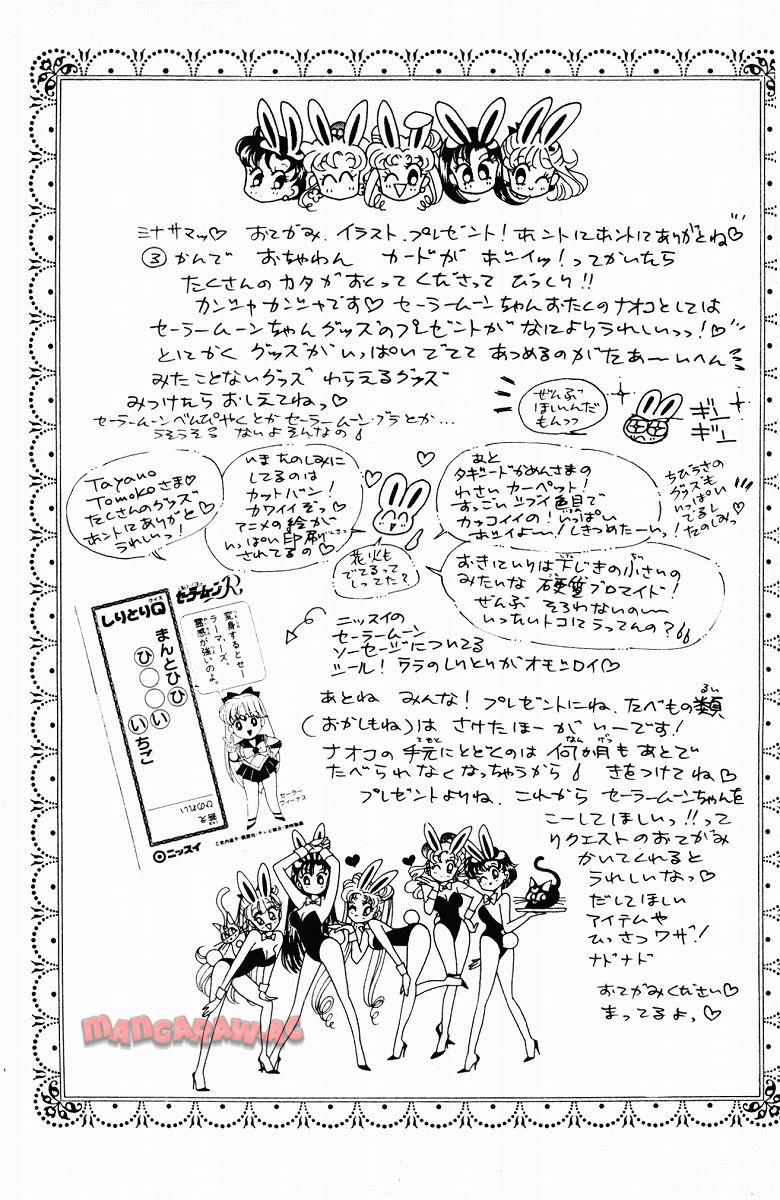 ミナサマッ♡ おてがみ、イラスト、プレゼント！ホントにホントにありがとね♡
③かんで おちゃわん カードが ホシイッ！ってかいたら
たくさんのカタがおくってくださって びっくり!!
カンシャカンシャです♡ セーラームーンちゃんおたくのナオコとしては
セーラームーンちゃんグッズのプレゼントがなによりうれしいっっ！♡
とにかく グッズがいっぱいでてて あつめるのがたあーいへん
みたことないグッズ わらえるグズ
みつけたら おしえてねっ♡
セーラームーンべんぴやくとか セーラームーンブラとか…
うそうそ ないよそんなの
ぜんぶ
ほしいんだ
もんっっ
ギュー
ギュー
Tayano
Tomokoさま♡
たくさんのグッズ
ホントにありがと
うれしいっ！
いまたのしみに
してるのは
カットバン！
カワイイぞっ♡
アニメの絵が
いっぱい印刷
されてるの♡
花火も
でてるって
しってた？
あと
タキシードかめんさまの
わさい カーペット！
すっごいシブイ色目で
カッコイイの！いっぱい
ホシイよー！しきつめたーいっ！
ちびうさの
グッズも
いっぱい
でるし
たのしみっ♡
おきにいりは下じきの小さいの
みたいな 硬質ブロマイド！
ぜんぶ そろわないの〜
いったいトコにうってんの？
セーラームーンR
しりとりQ
クイズ
まんとひひ
ひ○○い
いちご
答え
ひのれい
変身するとセー
ラーマーズ。
霊感が強いのよ。
セーラー
ヴィーナス
©武内直子・講談社・テレビ朝日・東映動画
ニッスイ
ニッスイの
セーラームーン
ソーセージについてる
シール！ウラのしりとりがオモシロイ♡
あとね みんな！プレゼントにね、たべもの類
るい
(おかしもね)は さけたほーがいーです！
ナオコの手元にとどくのは 何か月もあとで
てもと
なん げつ
たべられなくなっちゃうから きをつけてね♡
プレゼントよりね、これから セーラームーンちゃんを
こーしてほしいっ!!って
リクエストのおてがみ
かいてくれると
うれしいなっ♡
だしてほしい
アイテムや
ひっさつワザ！
ナドナド
おてがみください♡
まってるよっ♡
MANGARAW.AC